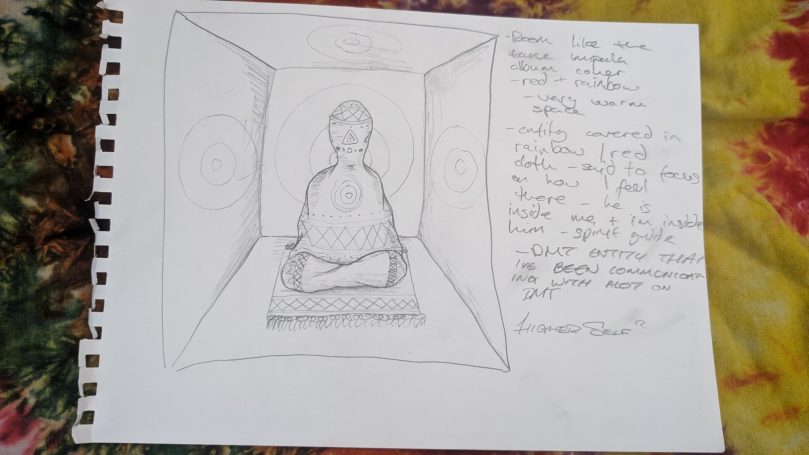 - Room like the
tame impala
album cover
- red + rainbow
- very warm
space
- entity covered in
rainbow / red
cloth - said to focus
on how I feel
there - he is
inside me + I'm inside
him - spirit guide
- DMT ENTITY THAT
I'VE BEEN COMMUNICAT
ING WITH ALOT ON
DMT
HIGHER SELF?